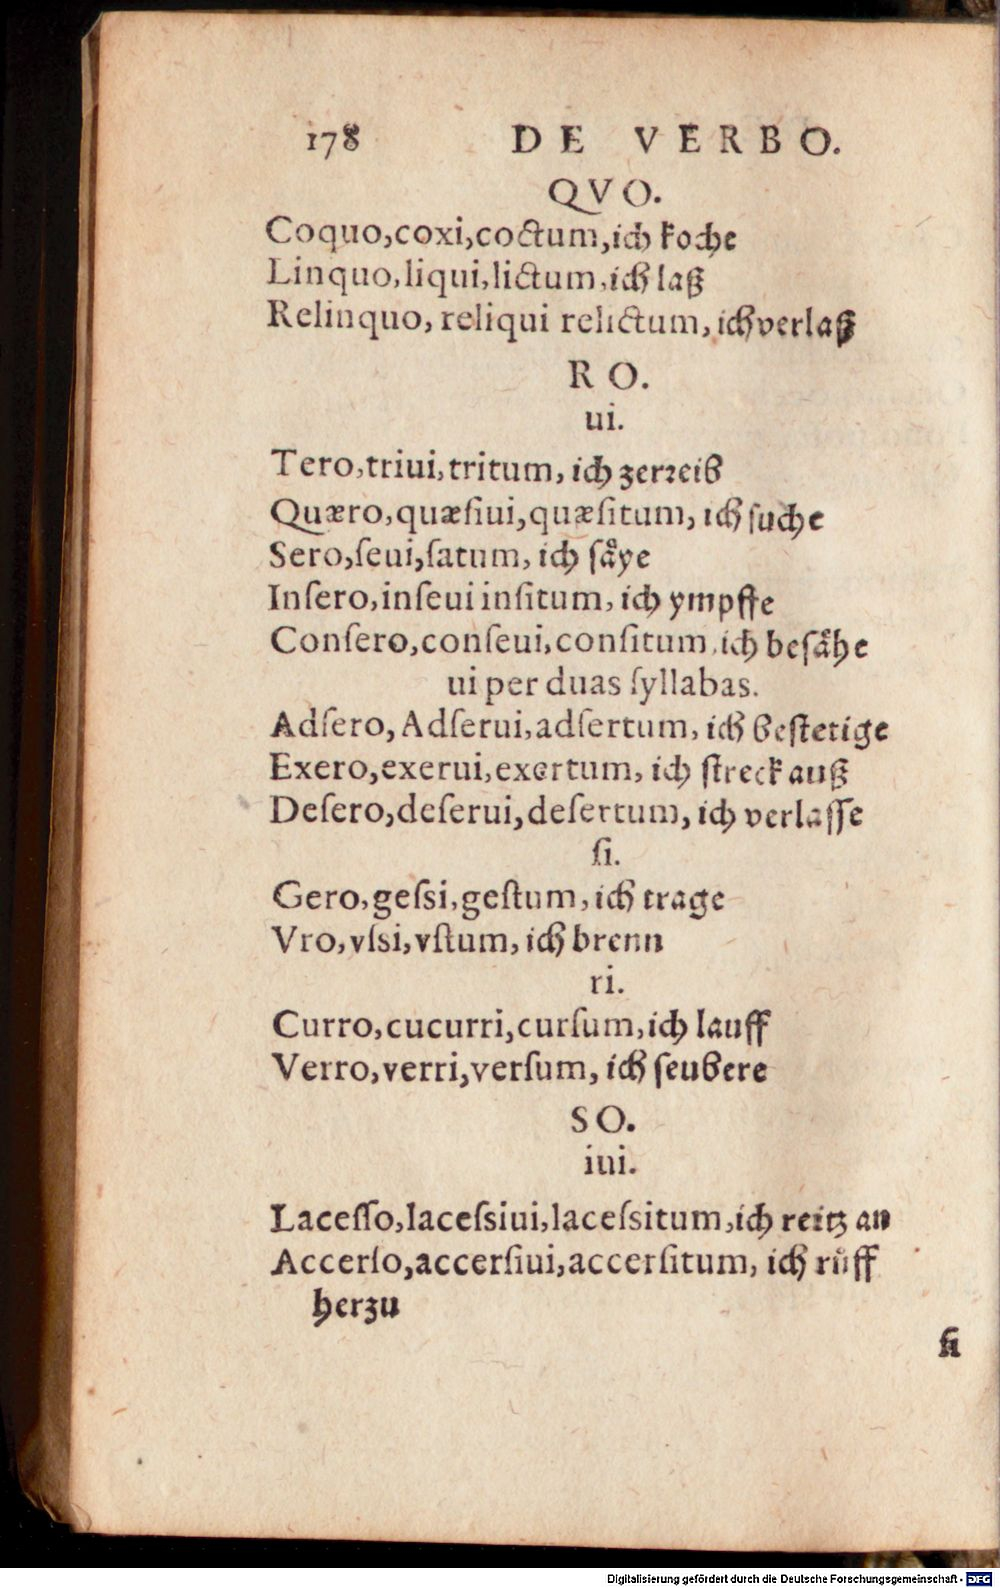 178 DE VERBO.
QVO.
Coquo,coxi,coctum,ich koche
Linquo,liqui,lictum,ich laß
Relinquo, reliqui relictum, ich verlaß
RO.
ui.
Tero,triui,tritum, ich zerꝛeiß
Quæro,quæſiui,quæſitum, ich ſuche
Sero,ſeui,ſatum, ich ſaͤye
Inſero,inſeui inſitum, ich ympffe
Conſero,conſeui,conſitum,ich beſaͤhe
ui per duas ſyllabas.
Adſero, Adſerui,adſertum, ich beſtetige
Exero,exerui,exertum, ich ſtreck auß
Deſero,deſerui,deſertum, ich verlaſſe
ſi.
Gero,geſsi,geſtum,ich trage
Vro,vſsi,vſtum,ich brenn
ri.
Curro,cucurri,curſum,ich lauff
Verro,verri,verſum, ich ſeubere
SO.
iui.
Laceſſo,laceſsiui,laceſsitum,ich reitz an
Accerſo,accerſiui,accerſitum, ich ruͤff
herzu
ſi
Digitalisierung gefördert durch die Deutsche Forschungsgemeinschaft - DFG